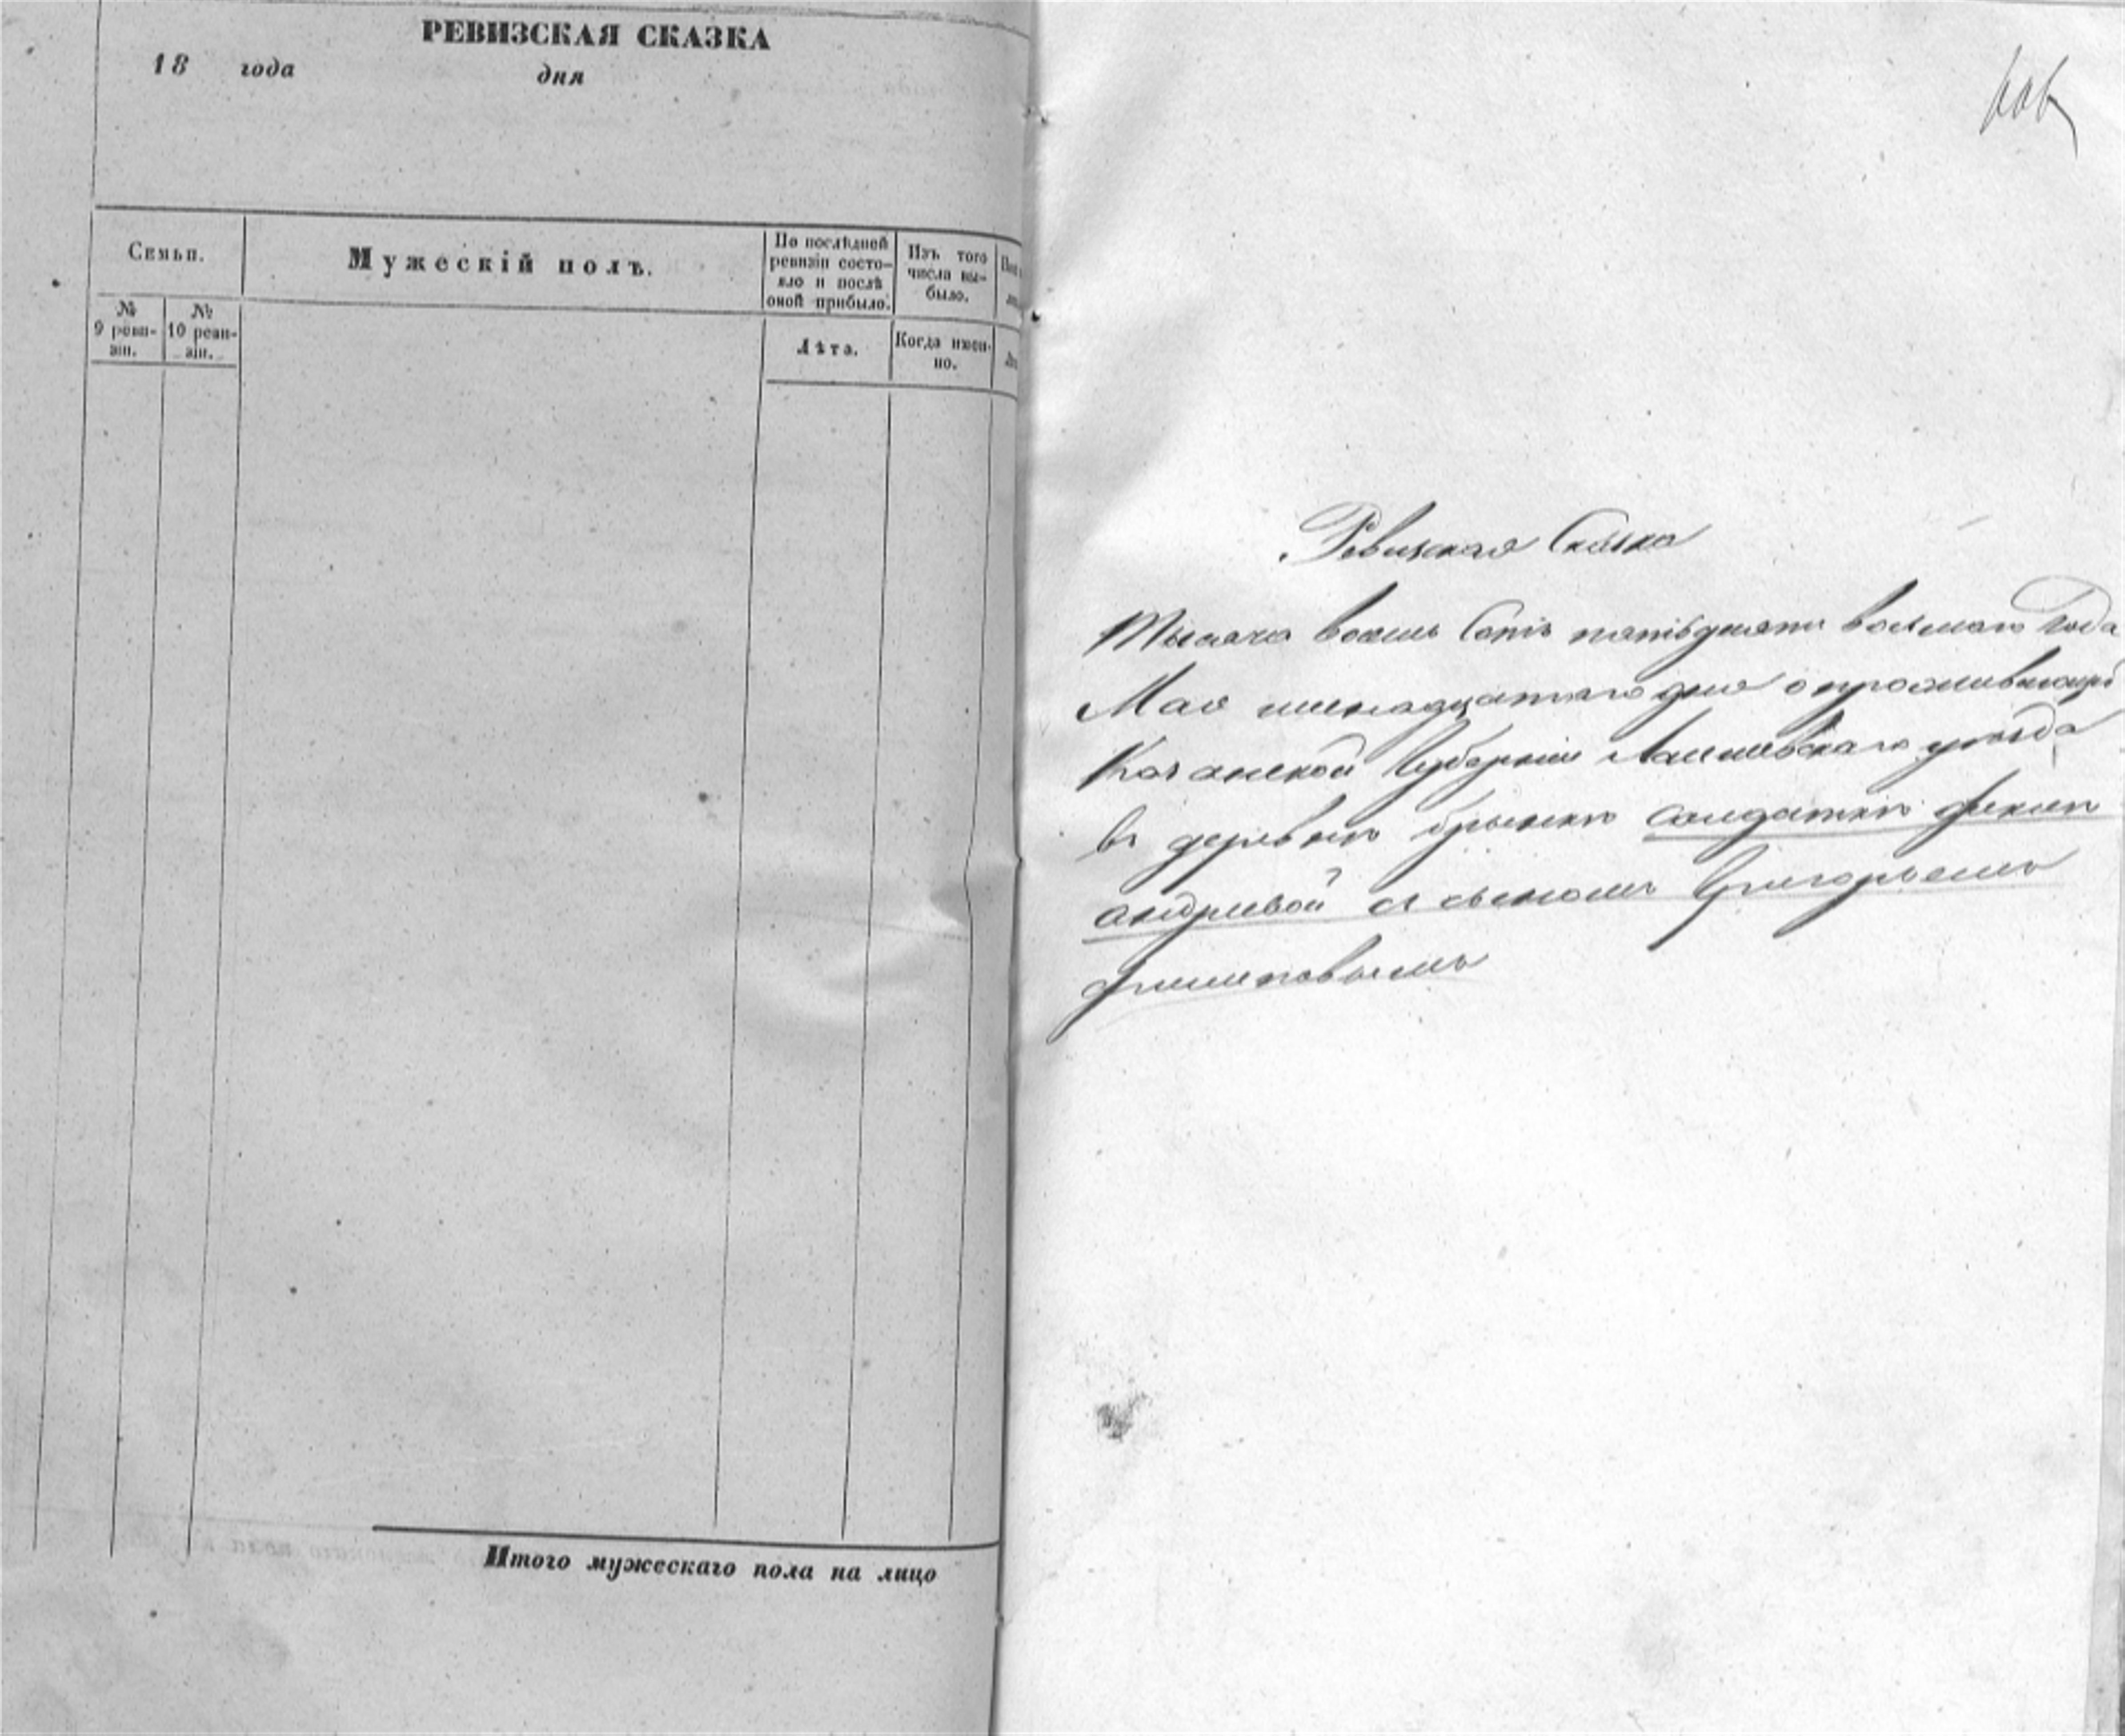 РЕВИЗСКАЯ СКАЗКА
18 года дня
Семьи.
Мужескій полъ.
По послѣдней
ревизіи состо-
яло и послѣ
оной прибыло.
Изъ того
числа вы-
было.
№
9 реви-
зіи.
№
10 реви-
зіи.
Лѣта.
Когда имен-
но.
Итого мужескаго пола на лицо
Ревизская Сказка
Тысяча восемь Сотъ пятьдесятъ восьмаго Года
Мая дня о проживающей
Казанской Губерніи Лаишевскаго уѣзда
въ деревнѣ солдаткѣ
андреевой съ сыномъ Григорьемъ
филиповымъ